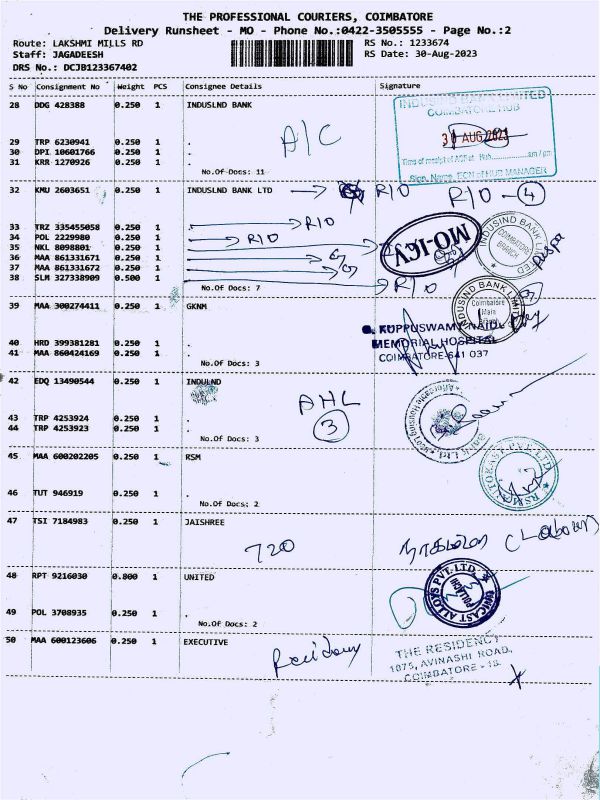 THE PROFESSIONAL COURIERS, COIMBATORE
Delivery Runsheet - MO - Phone No.:0422-3505555 - Page No.:2
Route: LAKSHMI MILLS RD RS No.: 1233674
Staff: JAGADEESH RS Date: 30-Aug-2023
DRS No.: DCJB123367402
S No Consignment No Weight PCS Consignee Details Signature
28 DDG 428388 0.250 1 INDUSLND BANK
INDUSIND BANK LIMITED
COIMBATORE HUB
A/C
30 AUG 2023
29 TRP 6230941 0.250 1 .
30 DPI 10601766 0.250 1 .
31 KRR 1270926 0.250 1 .
No.Of Docs: 11
32 KMU 2603651 0.250 1 INDUSLND BANK LTD → R/O R/O - 4
33 TRZ 335455058 0.250 1 . → R/O
34 POL 2229980 0.250 1 . → R/O
35 NKL 8098801 0.250 1 .
MO-ICY
INDUSIND BANK LIMITED
COIMBATORE BRANCH
36 MAA 861331671 0.250 1 .
37 MAA 861331672 0.250 1 .
38 SLM 327338909 0.500 1 . R/O
No.Of Docs: 7
INDUSIND BANK LIMITED
Coimbatore Main
39 MAA 300274411 0.250 1 GKNM
KUPPUSWAMY NAIDU
MEMORIAL HOSPITAL
COIMBATORE-641 037
40 HRD 399381281 0.250 1 .
41 MAA 860424169 0.250 1 .
No.Of Docs: 3
42 EDQ 13490544 0.250 1 INDULND
AHL
3
43 TRP 4253924 0.250 1 .
44 TRP 4253923 0.250 1 .
No.Of Docs: 3
45 MAA 600202205 0.250 1 RSM
RSM AUTOKAST PVT. LTD
46 TUT 946919 0.250 1 .
No.Of Docs: 2
47 TSI 7184983 0.250 1 JAISHREE
720
நாகம்மா (Labour)
48 RPT 9216030 0.800 1 UNITED
UNICAST ALLOYS PVT. LTD
49 POL 3708935 0.250 1 .
No.Of Docs: 2
50 MAA 600123606 0.250 1 EXECUTIVE
Residency
THE RESIDENCY
1075, AVINASHI ROAD,
COIMBATORE - 18.